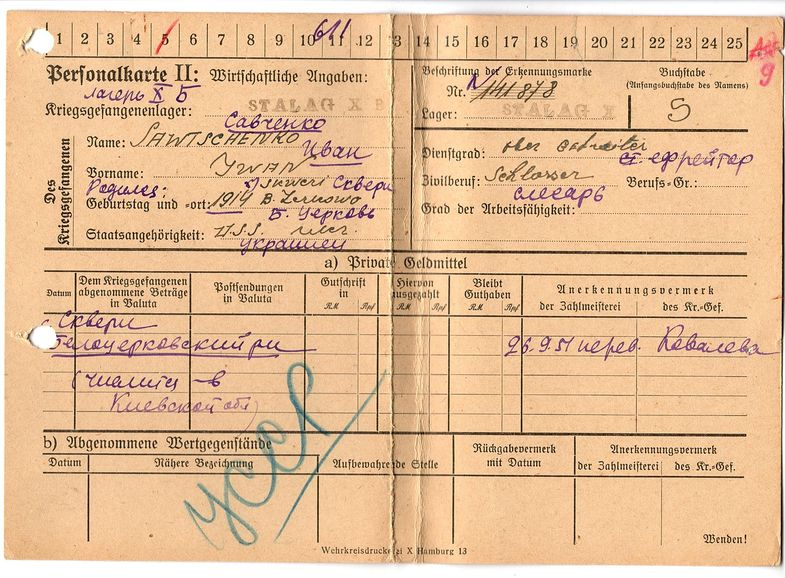 1 2 3 4 5 6 7 8 9 10 11 12 13 14 15 16 17 18 19 20 21 22 23 24 25
611
9
Personalkarte II: Wirtschaftliche Angaben:
Beschriftung der Erkennungsmarke
Nr. 141 878
Buchstabe
(Anfangsbuchstabe des Namens)
S
Лагерь X Б
Kriegsgefangenenlager: STALAG X B
Lager: STALAG X
Des Kriegsgefangenen
Савченко
Name: SAWTSCHENKO
Иван
Vorname: IWAN
Родился:
Geburtstag und =ort: 1914
Сквери
Б. Церковь
Staatsangehörigkeit:
украинец
Dienstgrad:
ст. ефрейтор
Zivilberuf: Schlosser Berufs=Gr.:
слесарь
Grad der Arbeitsfähigkeit:
a) Private Geldmittel
Datum
Dem Kriegsgefangenen abgenommene Beträge in Valuta
Postsendungen in Valuta
Gutschrift in
RM Rpf
Hiervon ausgezahlt
RM Rpf
Bleibt Guthaben
RM Rpf
Anerkennungsvermerk
der Zahlmeisterei des Kr.=Gef.
с. Сквери
Белоцерковский рн
26.9.51 перев. Ковалева
Киевской обл)
УССР
b) Abgenommene Wertgegenstände
Datum
Nähere Bezeichnung
Aufbewahrende Stelle
Rückgabevermerk mit Datum
Anerkennungsvermerk
der Zahlmeisterei des Kr.=Gef.
Wenden!
Wehrkreisdruckerei X Hamburg 13